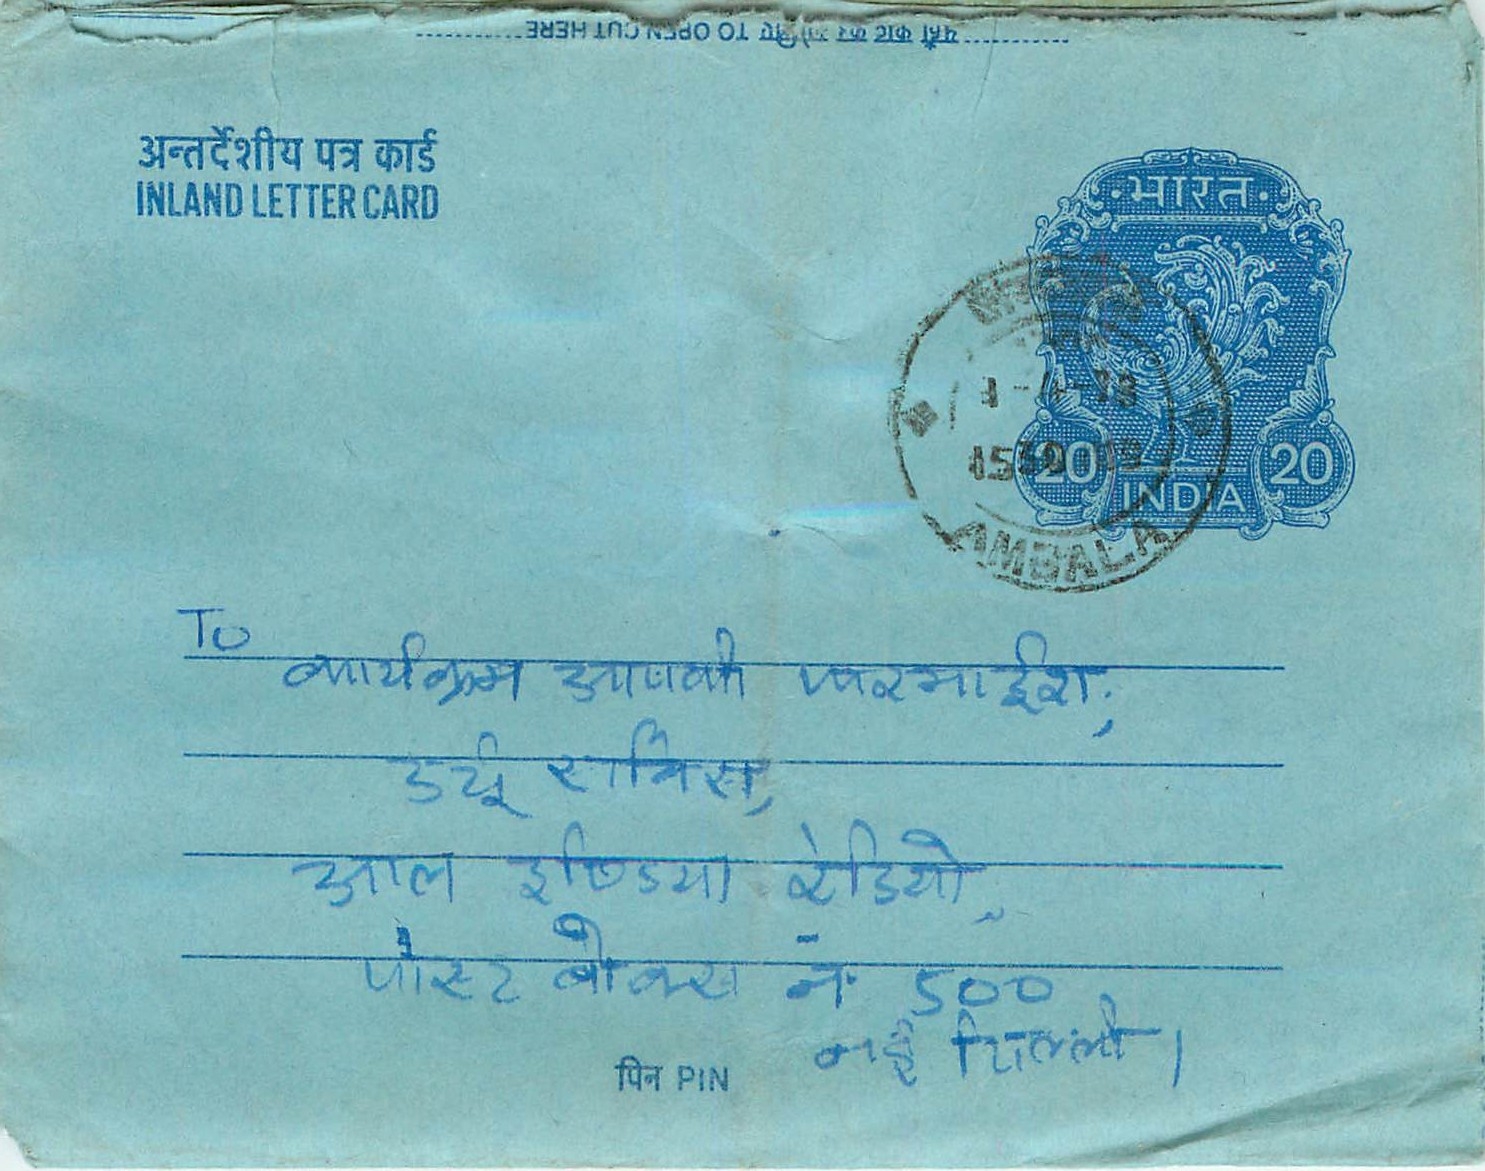 यहाँ काट कर खोलिए TO OPEN CUT HERE
अन्तर्देशीय पत्र कार्ड
INLAND LETTER CARD
भारत
20 20
INDIA
1530
AMBALA
To
कार्यक्रम आपकी फरमाईश,
उर्दू सर्विस,
आल इण्डिया रेडियो,
पोस्ट बौक्स नं. 500
नई दिल्ली।
पिन PIN